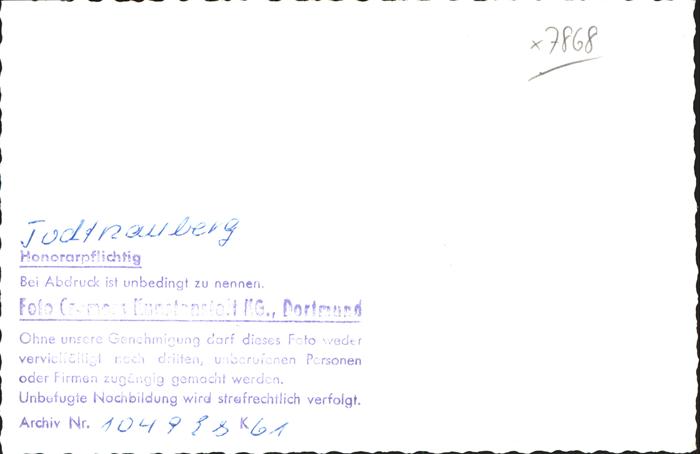 x7868
Todtnauberg
Honorarpflichtig
Bei Abdruck ist unbedingt zu nennen.
Foto Cramers Kunstanstalt KG., Dortmund
Ohne unsere Genehmigung darf dieses Foto weder
vervielfältigt noch dritten, unberufenen Personen
oder Firmen zugängig gemacht werden.
Unbefugte Nachbildung wird strafrechtlich verfolgt.
Archiv Nr. K61